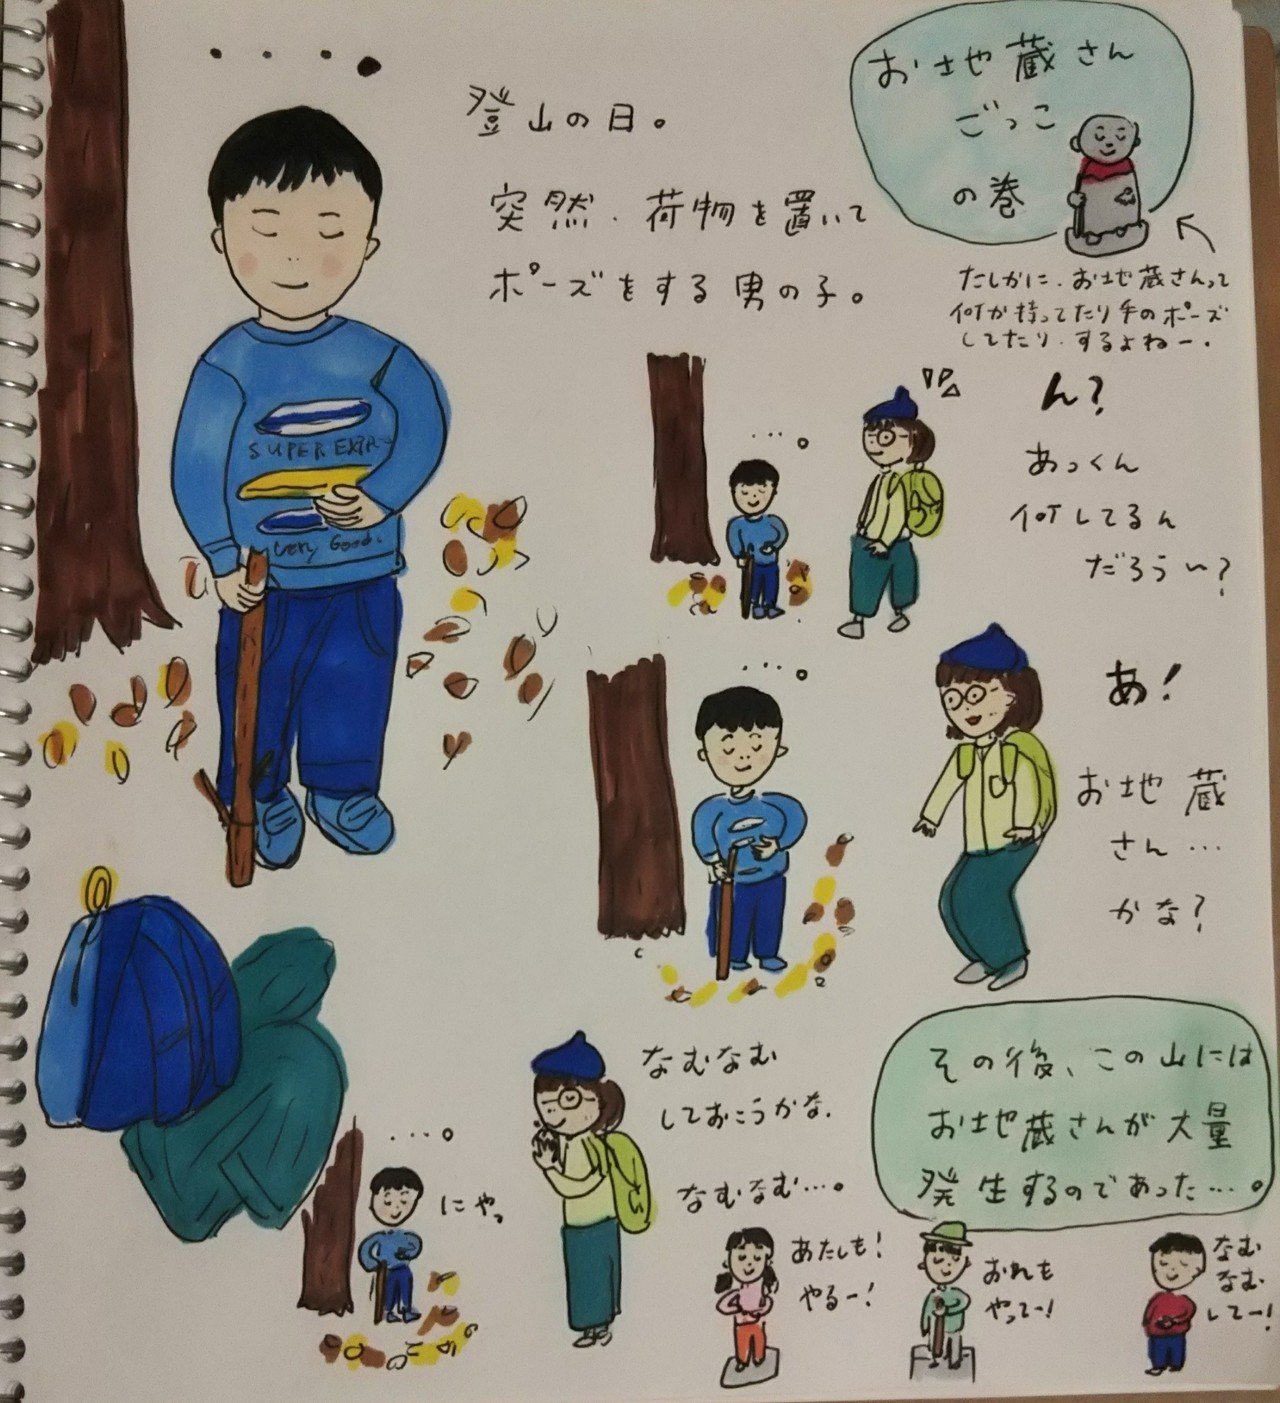 お地蔵さん
ごっこ
の巻
たしかに、お地蔵さんって
何か持ってたり手のポーズ
してたり、するよねー。
登山の日。
突然、荷物を置いて
ポーズをする男の子。
SUPER EXPR
Very Good.
ん？
あっくん
何してるん
だろうい？
あ！
お地蔵
さん…
かな？
なむなむ
しておこうかな。
なむなむ…。
にやっ
その後、この山には
お地蔵さんが大量
発生するのであった…。
あたしも！
やるー！
おれも
やってー！
なむ
なむ
してー！